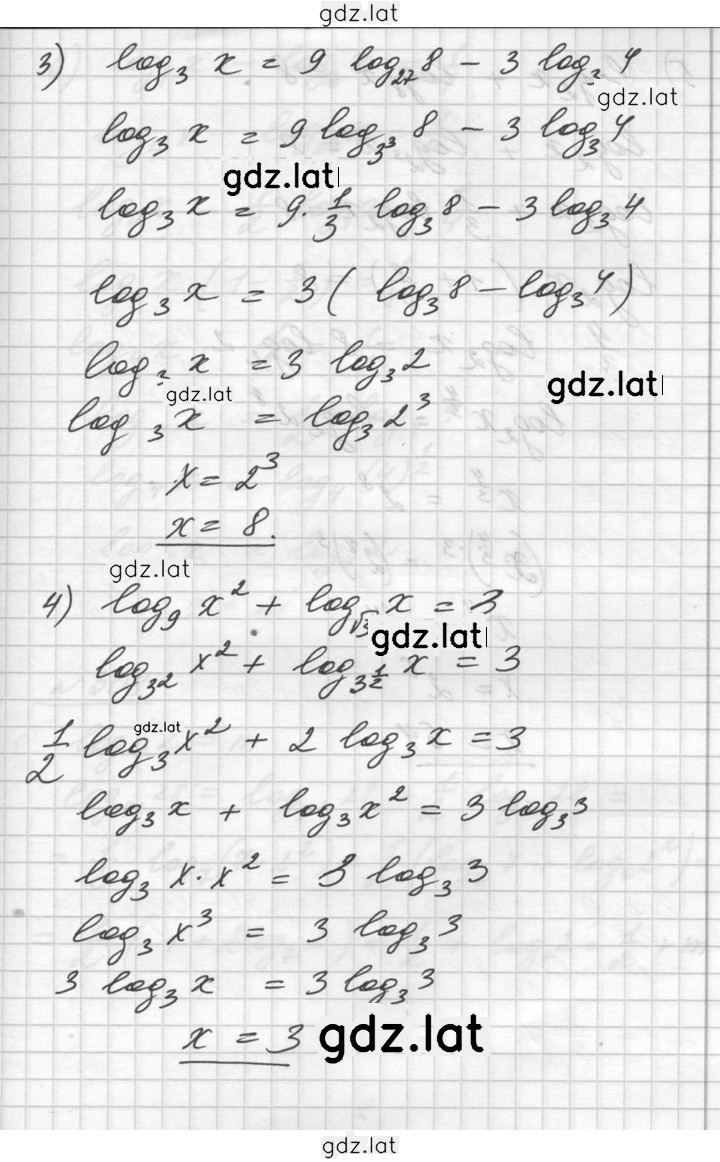 gdz.lat
3) log₃ x = 9 log₂₇ 8 − 3 log₃ 4
gdz.lat
log₃ x = 9 log₃³ 8 − 3 log₃ 4
gdz.lat
log₃ x = 9 · 1/3 log₃ 8 − 3 log₃ 4
log₃ x = 3 ( log₃ 8 − log₃ 4 )
log₃ x = 3 log₃ 2
gdz.lat
gdz.lat
log₃ x = log₃ 2³
x = 2³
x = 8.
gdz.lat
4) log₉ x² + log√3 x = 3
gdz.lat
log₃² x² + log₃^½ x = 3
gdz.lat
1/2 log₃ x² + 2 log₃ x = 3
log₃ x + log₃ x² = 3 log₃ 3
log₃ x · x² = 3 log₃ 3
log₃ x³ = 3 log₃ 3
3 log₃ x = 3 log₃ 3
x = 3 gdz.lat
gdz.lat